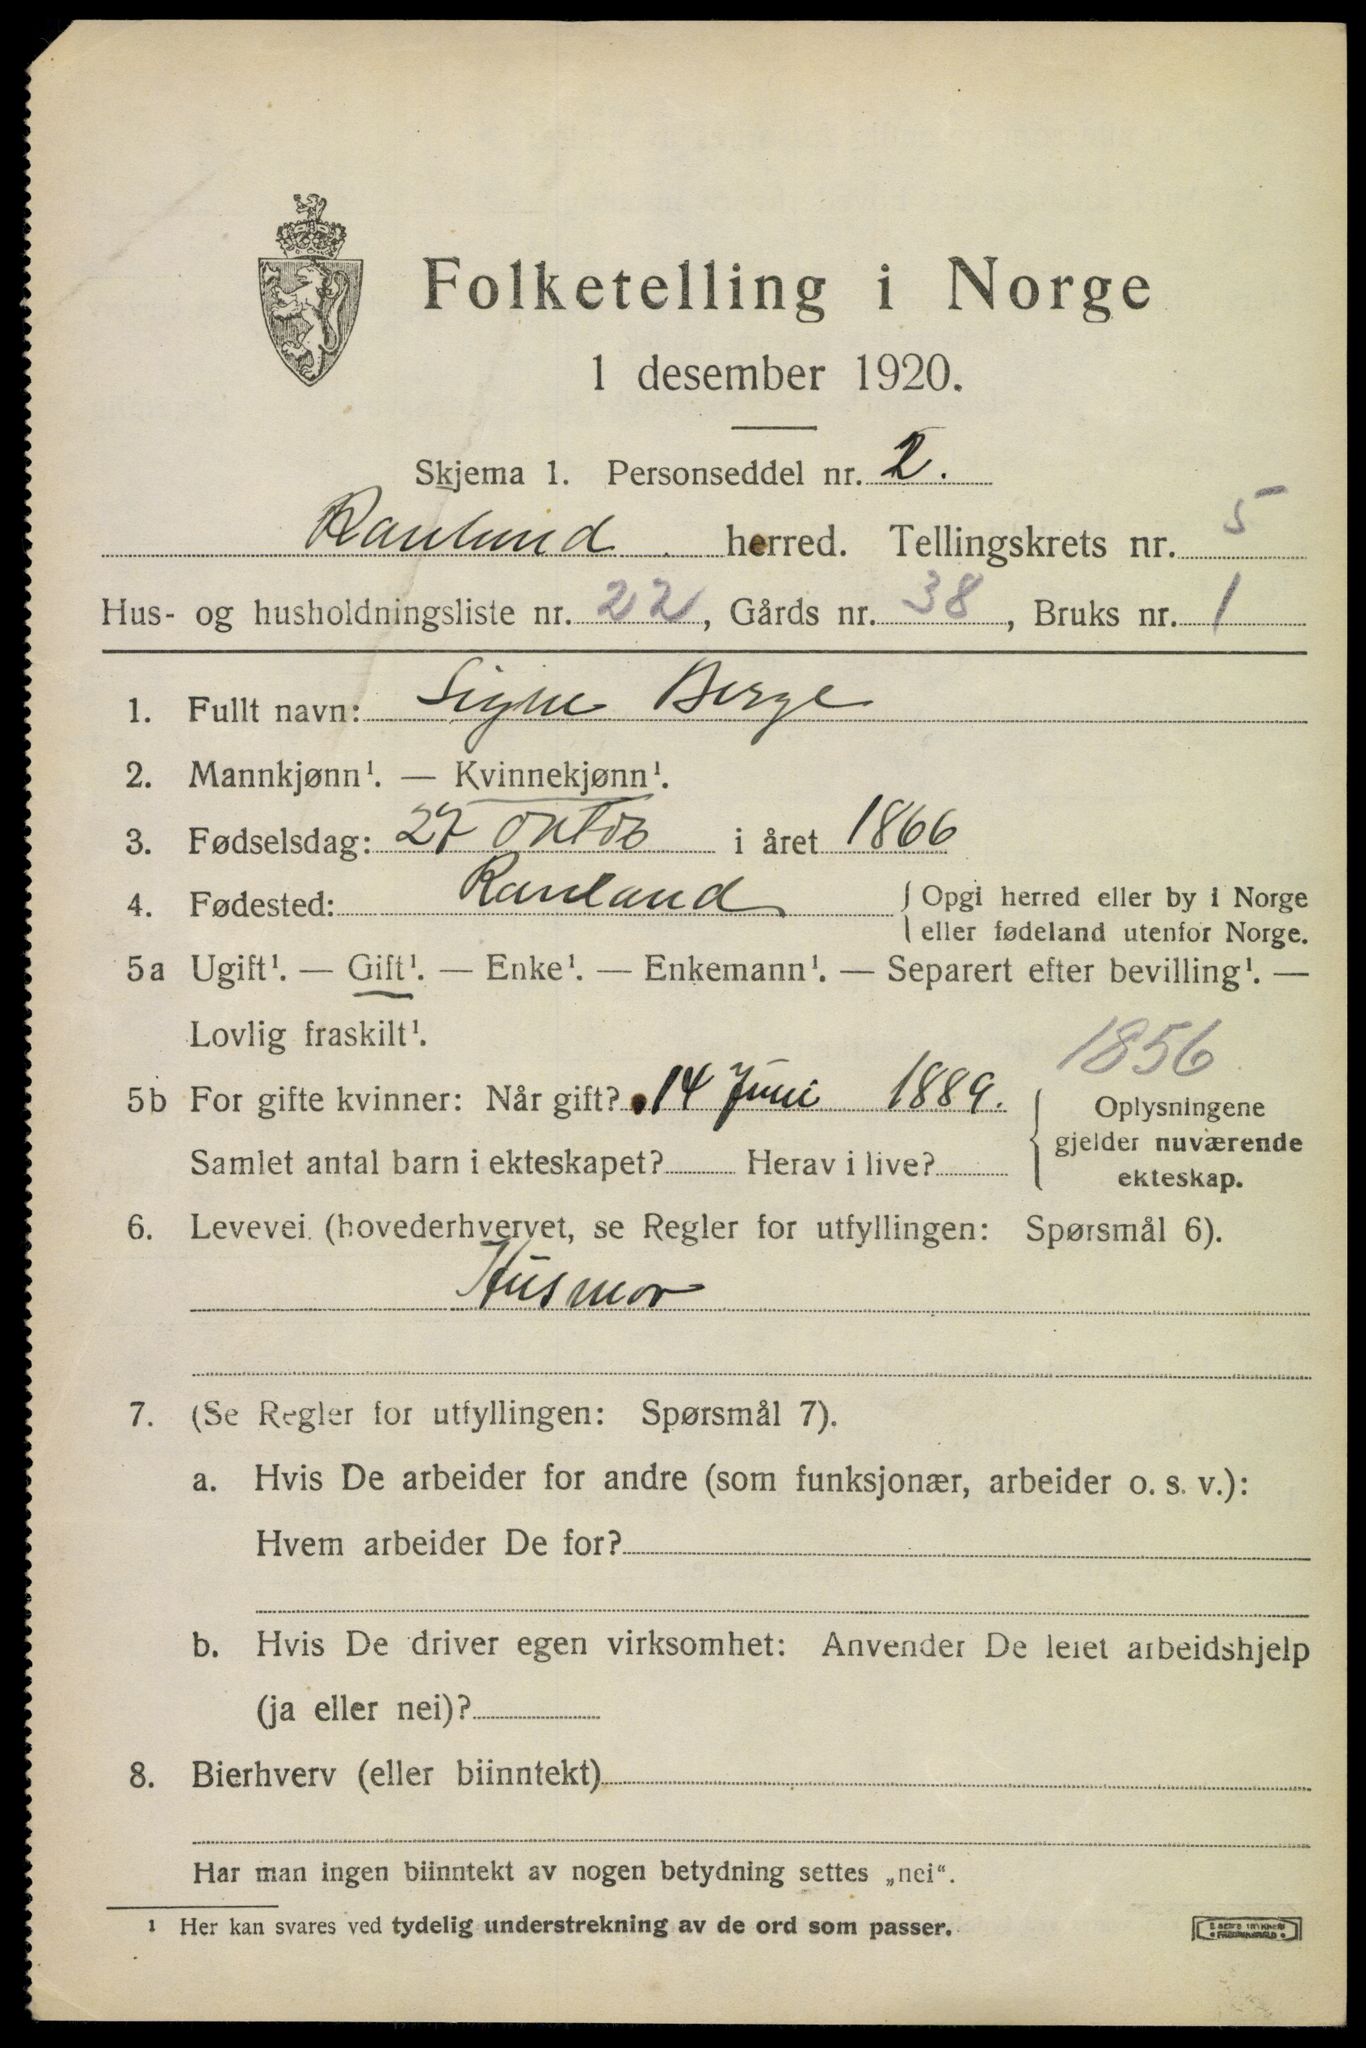 Folketelling i Norge
1 desember 1920.
Skjema 1. Personseddel nr. 2.
Rauland herred. Tellingskrets nr. 5
Hus- og husholdningsliste nr. 22, Gårds nr. 38, Bruks nr. 1
1. Fullt navn: Signe Berge
2. Mannkjønn¹. — Kvinnekjønn¹.
3. Fødselsdag: 27 oktob i året 1866
4. Fødested: Rauland { Opgi herred eller by i Norge
eller fødeland utenfor Norge.
5a Ugift¹. — Gift¹. — Enke¹. — Enkemann¹. — Separert efter bevilling¹. —
Lovlig fraskilt¹.
1856
5b For gifte kvinner: Når gift? 14 Juni 1889. { Oplysningene
gjelder nuværende
Samlet antal barn i ekteskapet? Herav i live?
ekteskap.
6. Levevei (hovederhvervet, se Regler for utfyllingen: Spørsmål 6).
Husmor
7. (Se Regler for utfyllingen: Spørsmål 7).
a. Hvis De arbeider for andre (som funksjonær, arbeider o. s. v.):
Hvem arbeider De for?
b. Hvis De driver egen virksomhet: Anvender De leiet arbeidshjelp
(ja eller nei)?
8. Bierhverv (eller biinntekt)
Har man ingen biinntekt av nogen betydning settes „nei“.
¹ Her kan svares ved tydelig understrekning av de ord som passer.